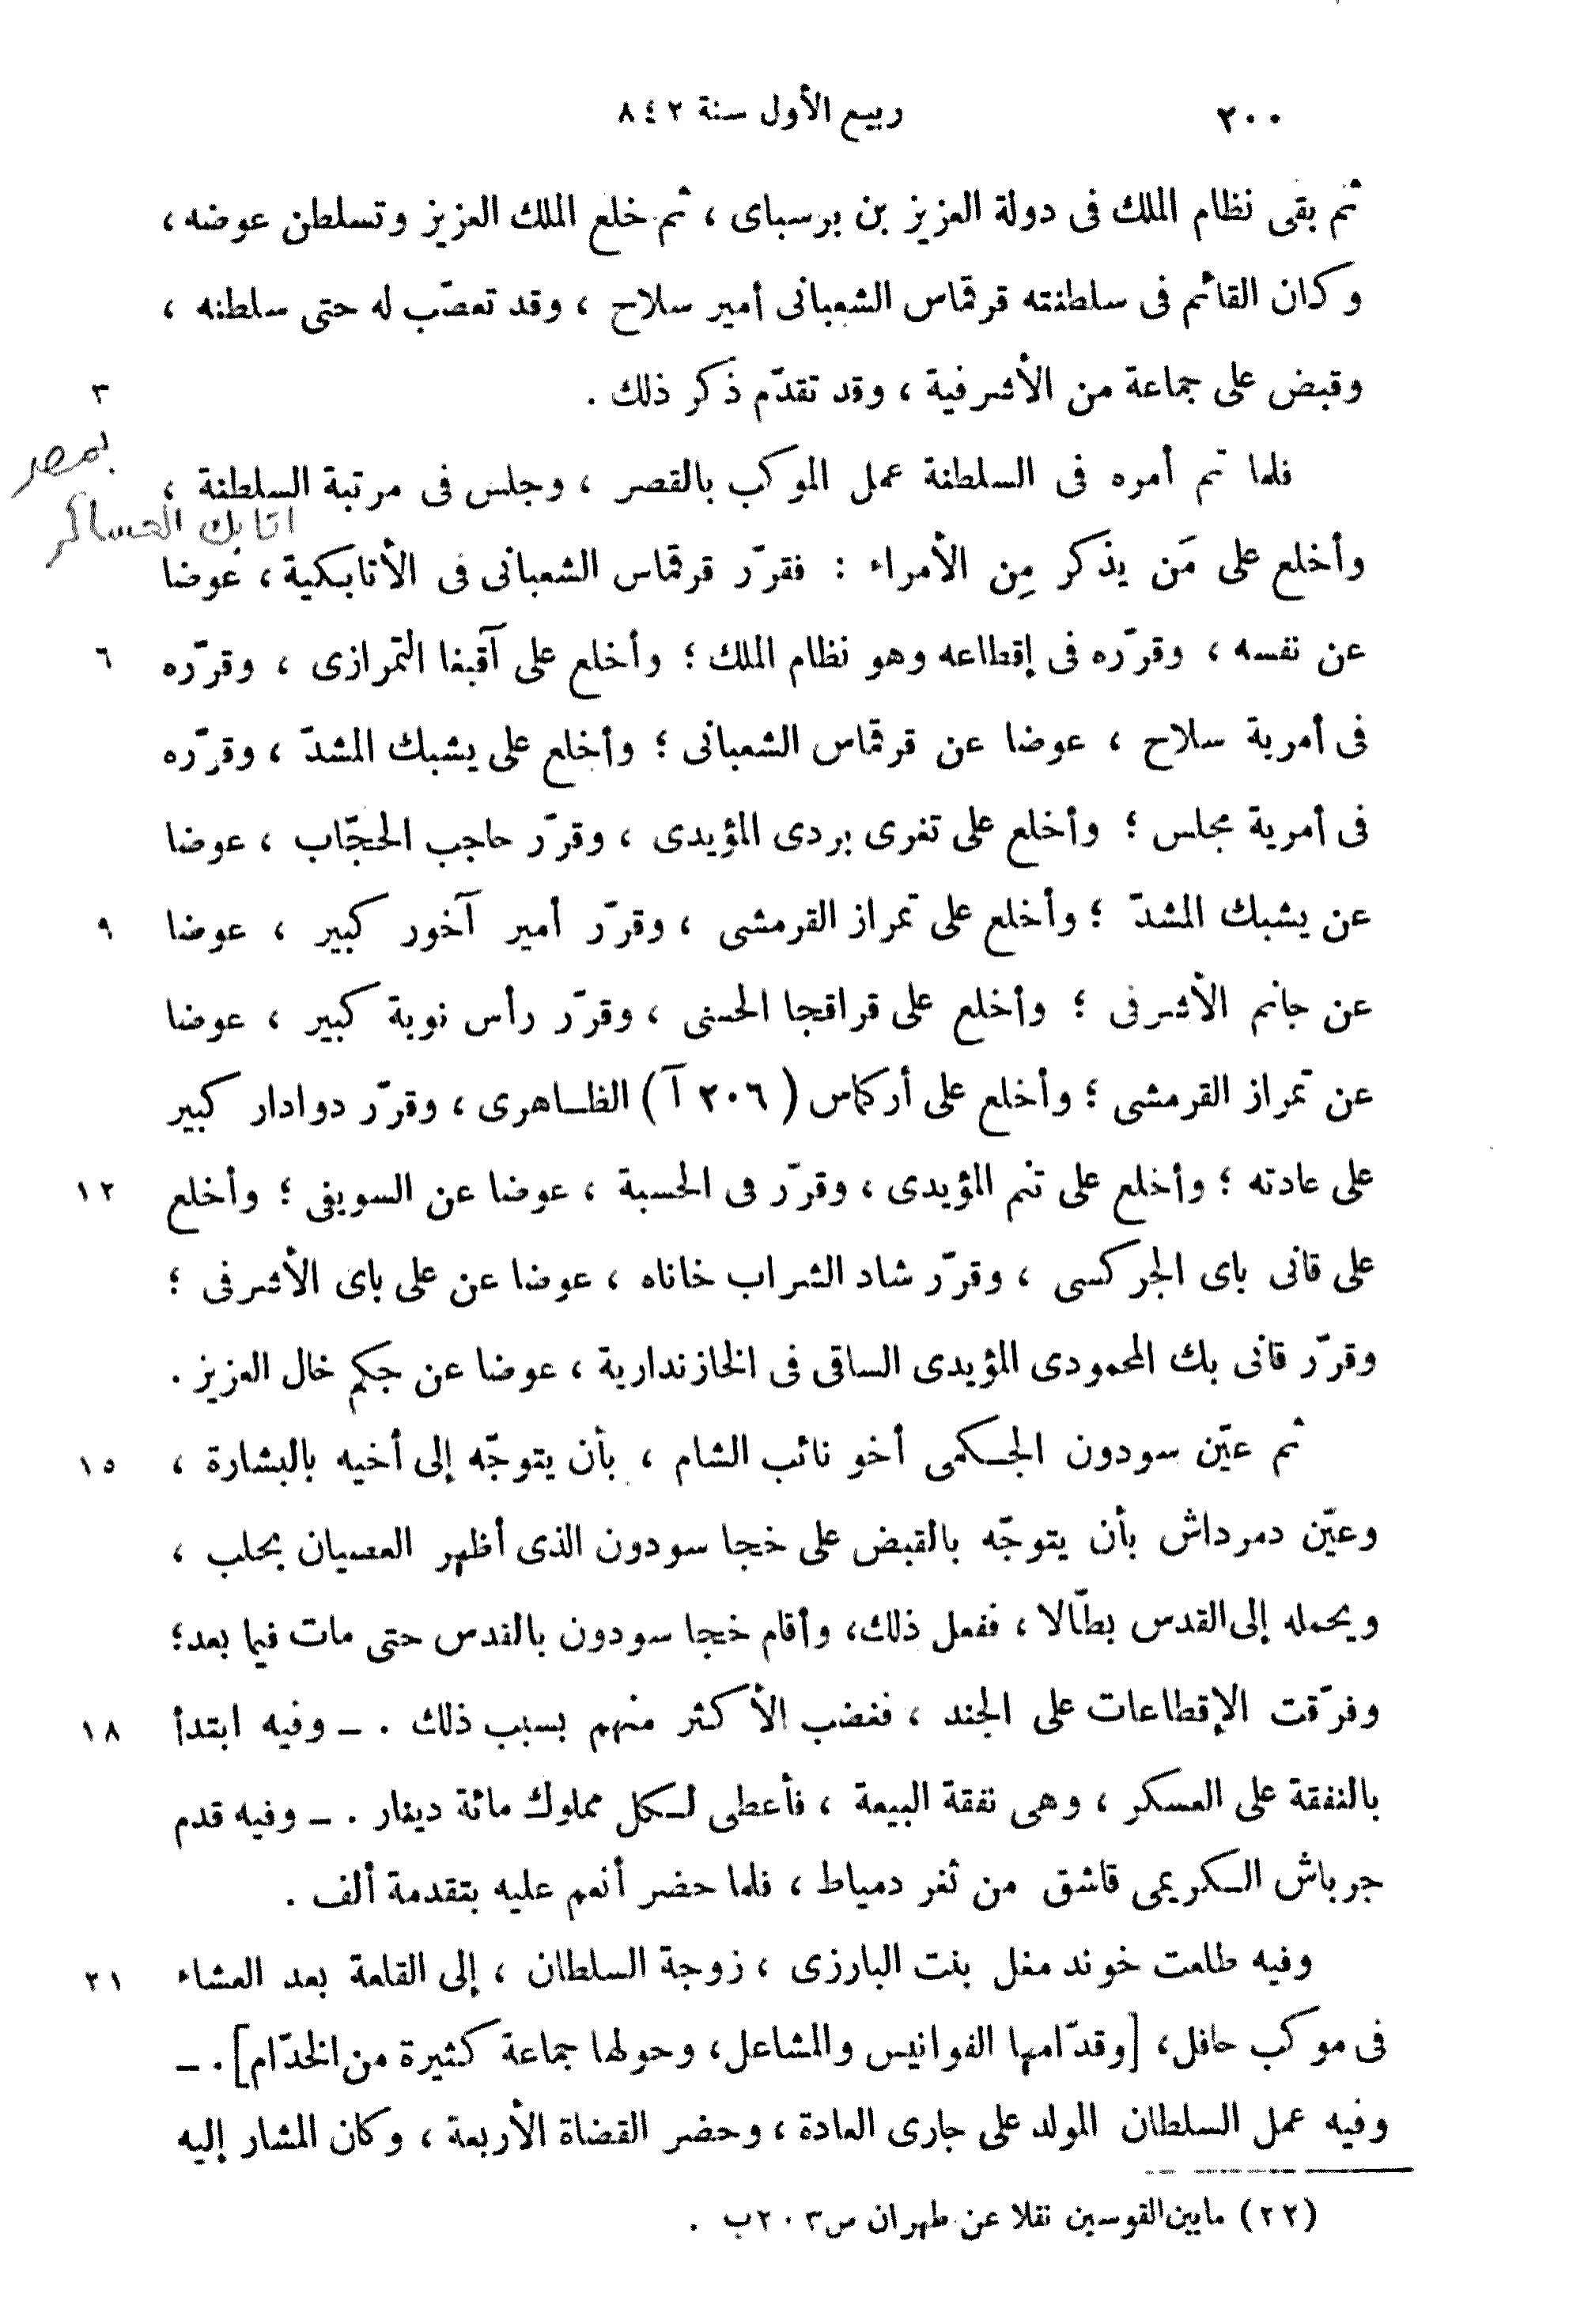 ٢٠٠
ربيع الأول سنة ٨٤٢
ثم بقى نظام الملك فى دولة العزيز بن برسباى ، ثم خلع الملك العزيز وتسلطن عوضه ،
وكان القائم فى سلطنته قرقماس الشعبانى أمير سلاح ، وقد تعصّب له حتى سلطنه ،
وقبض على جماعة من الأشرفية ، وقد تقدّم ذكر ذلك .
٣
بمصر
فلما تم أمره فى السلطنة عمل الموكب بالقصر ، وجلس فى مرتبة السلطنة ،
اتابك العساكر
وأخلع على مَن يذكر مِن الأمراء : فقرّر قرقماس الشعبانى فى الأتابكية ، عوضا
عن نفسه ، وقرّره فى إقطاعه وهو نظام الملك ؛ وأخلع على آقبغا التمرازى ، وقرّره
٦
فى أمرية سلاح ، عوضا عن قرقماس الشعبانى ؛ وأخلع على يشبك المشدّ ، وقرّره
فى أمرية مجلس ؛ وأخلع على تغرى بردى المؤيدى ، وقرّر حاجب الحجّاب ، عوضا
عن يشبك المشدّ ؛ وأخلع على تمراز القرمشى ، وقرّر أمير آخور كبير ، عوضا
٩
عن جانم الأشرفى ؛ وأخلع على قراقجا الحسنى ، وقرّر رأس نوبة كبير ، عوضا
عن تمراز القرمشى ؛ وأخلع على أركماس (٢٠٦ آ) الظـاهرى ، وقرّر دوادار كبير
على عادته ؛ وأخلع على تنم المؤيدى ، وقرّر فى الحسبة ، عوضا عن السويفى ؛ وأخلع
١٢
على قانى باى الجركسى ، وقرّر شاد الشراب خاناه ، عوضا عن على باى الأشرفى ؛
وقرّر قانى بك المحمودى المؤيدى الساقى فى الخازندارية ، عوضا عن جكم خال العزيز .
ثم عيّن سودون الجـكمى أخو نائب الشام ، بأن يتوجّه إلى أخيه بالبشارة ،
١٥
وعيّن دمرداش بأن يتوجّه بالقبض على خجا سودون الذى أظهر العصيان بحلب ،
ويحمله إلى القدس بطّالا ، ففعل ذلك، وأقام خجا سودون بالقدس حتى مات فيما بعد؛
وفرّقت الإقطاعات على الجند ، فغضب الأكثر منهم بسبب ذلك . ــ وفيه ابتدأ
١٨
بالنفقة على العسكر ، وهى نفقة البيعة ، فأعطى لـكل مملوك مائة دينار . ــ وفيه قدم
جرباش الـكريمى قاشق من ثغر دمياط ، فلما حضر أنعم عليه بتقدمة ألف .
وفيه طلعت خوند مغل بنت البارزى ، زوجة السلطان ، إلى القلعة بعد العشاء
٢١
فى موكب حافل، [وقدّامها الفوانيس والمشاعل، وحولها جماعة كثيرة من الخدّام] . ــ
وفيه عمل السلطان المولد على جارى العادة ، وحضر القضاة الأربعة ، وكان المشار إليه
(٢٢) مابين القوسين نقلا عن طهران ص ٢٠٣ ب .